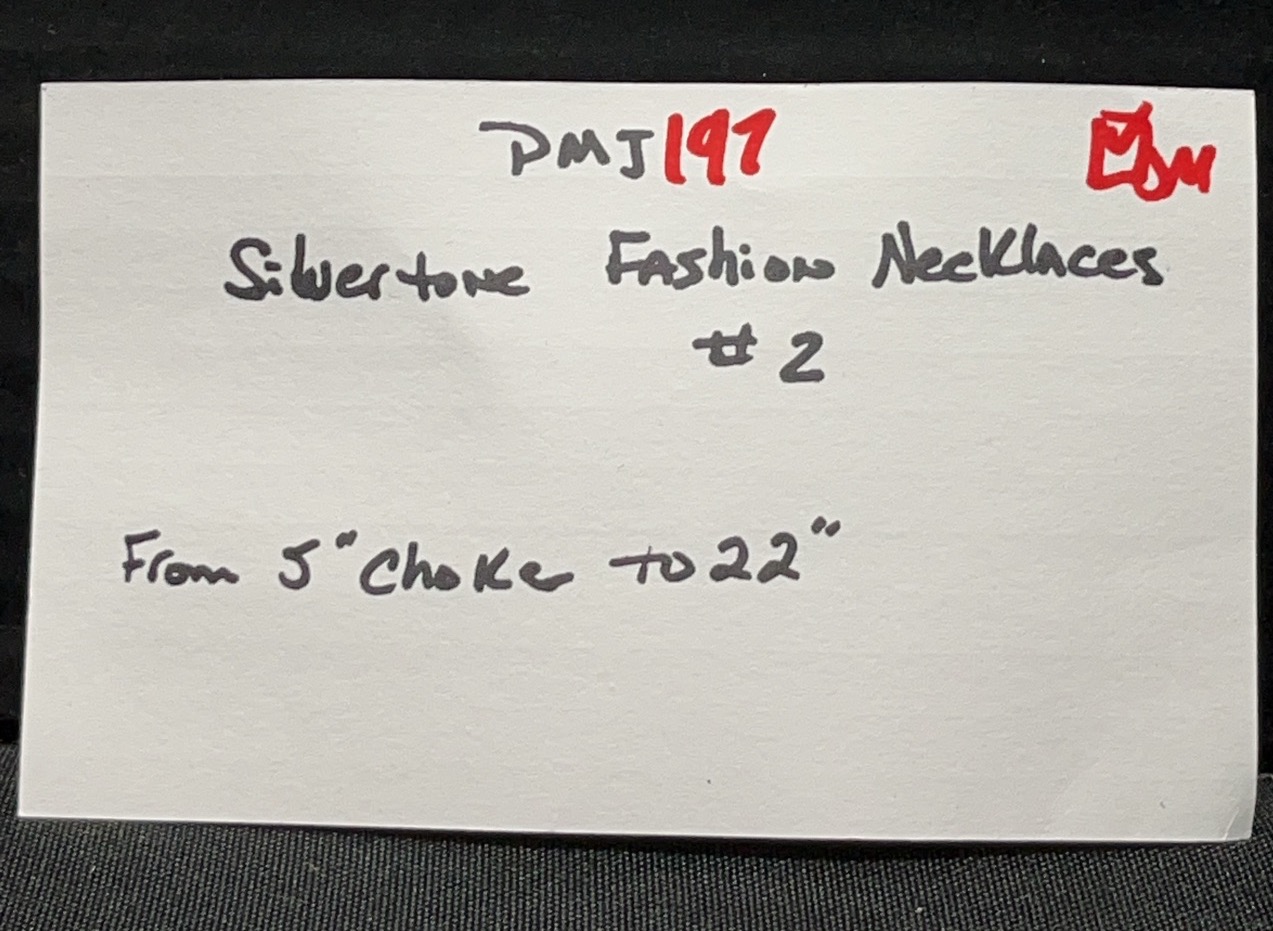 DMJ197
Silvertone Fashion Necklaces
# 2
From 5" Choker to 22"